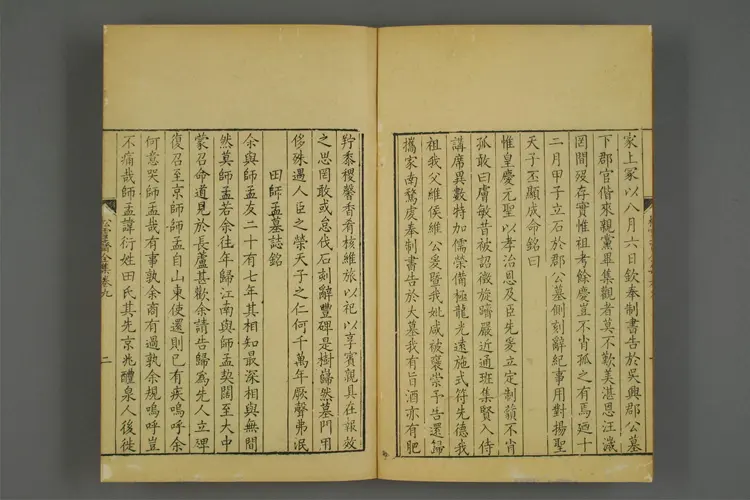 家上冢以八月六日欽奉制書告於吳興郡公墓
下郡官偕來觀黨畢集觀者莫不歎美湛恩汪濊
罔間歿存實惟祖考餘慶豈不肖孤之有焉廼十
二月甲子立石於郡公墓側刻辭紀事用對揚聖
天子丕顯成命銘曰
惟皇慶元聖以孝治恩及臣先爰立定制顧不肖
孤敢曰膚敏昔被詔徵旋躋嚴近通班集賢入侍
講席異數特加儒榮備極龍光遠施式符先德我
祖我父維侯維公爰暨我妣咸被褒崇予告還歸
攜家南騖虔奉制書告於大墓我有旨酒亦有肥
羜黍稷馨香肴核維旅以祀以享賓親具在報效
之思罔敢或怠伐石刻辭豐碑是樹巋然墓門用
侈殊遇人臣之榮天子之仁何千萬年厥聲弗泯
田師孟墓誌銘
余與師孟友二十有七年其相知最深相與無間
然莫師孟若余往年歸江南與師孟契闊至大中
蒙召命道見於長蘆甚歡余請告歸為先人立碑
復召至京師師孟自山東使還則已有疾嗚呼余
何意哭師孟哉有事孰余商有過孰余規嗚呼豈
不痛哉師孟諱衍姓田氏其先京兆醴泉人後徙
松雪齋全集卷九
二